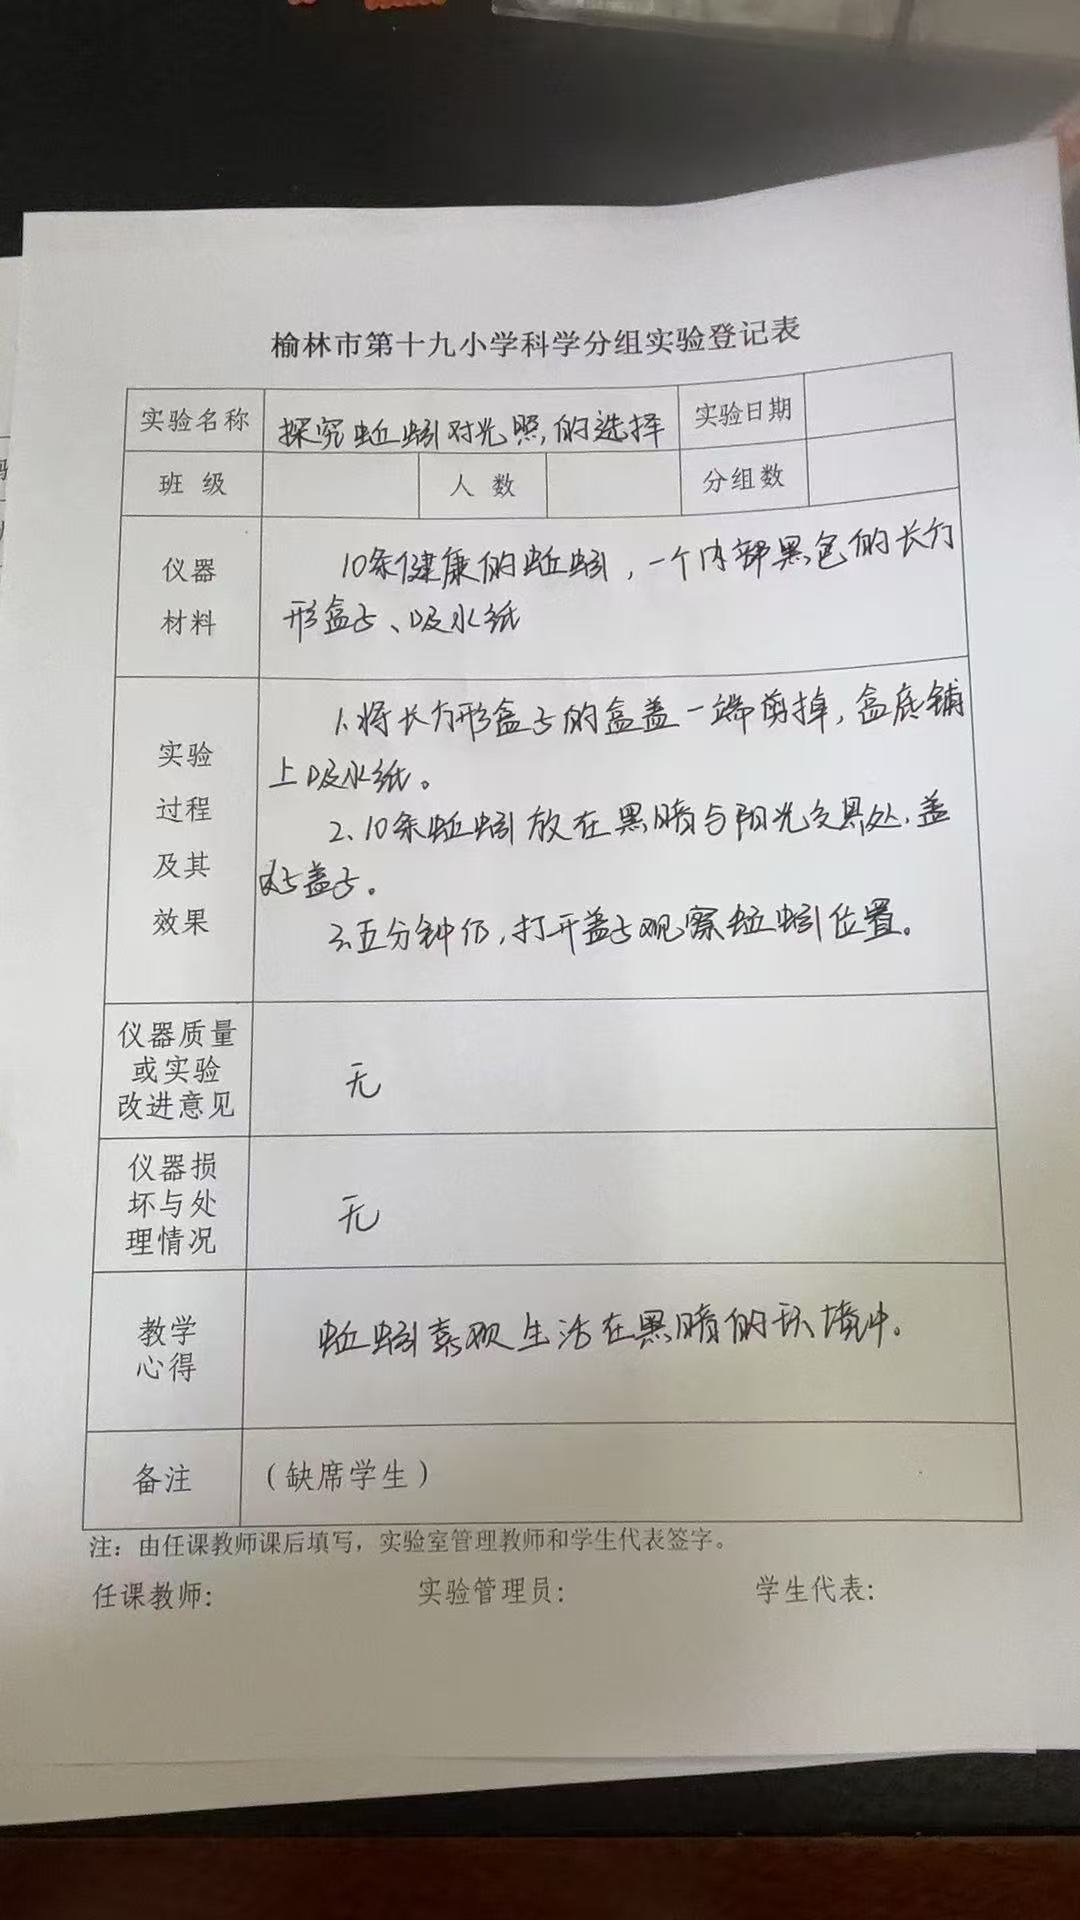 榆林市第十九小学科学分组实验登记表
实验名称 探究蚯蚓对光照的选择 实验日期
班 级 人 数 分组数
仪器
材料
10条健康的蚯蚓，一个内部黑色的长方
形盒子、吸水纸
实验
过程
及其
效果
1.将长方形盒子的盒盖一端剪掉，盒底铺
上吸水纸。
2、10条蚯蚓放在黑暗与阳光交界处，盖
好盖子。
3.五分钟后，打开盖子观察蚯蚓位置。
仪器质量
或实验
改进意见
无
仪器损
坏与处
理情况
无
教学
心得
蚯蚓喜欢生活在黑暗的环境中。
备注 （缺席学生）
注：由任课教师课后填写，实验室管理教师和学生代表签字。
任课教师： 实验管理员： 学生代表：